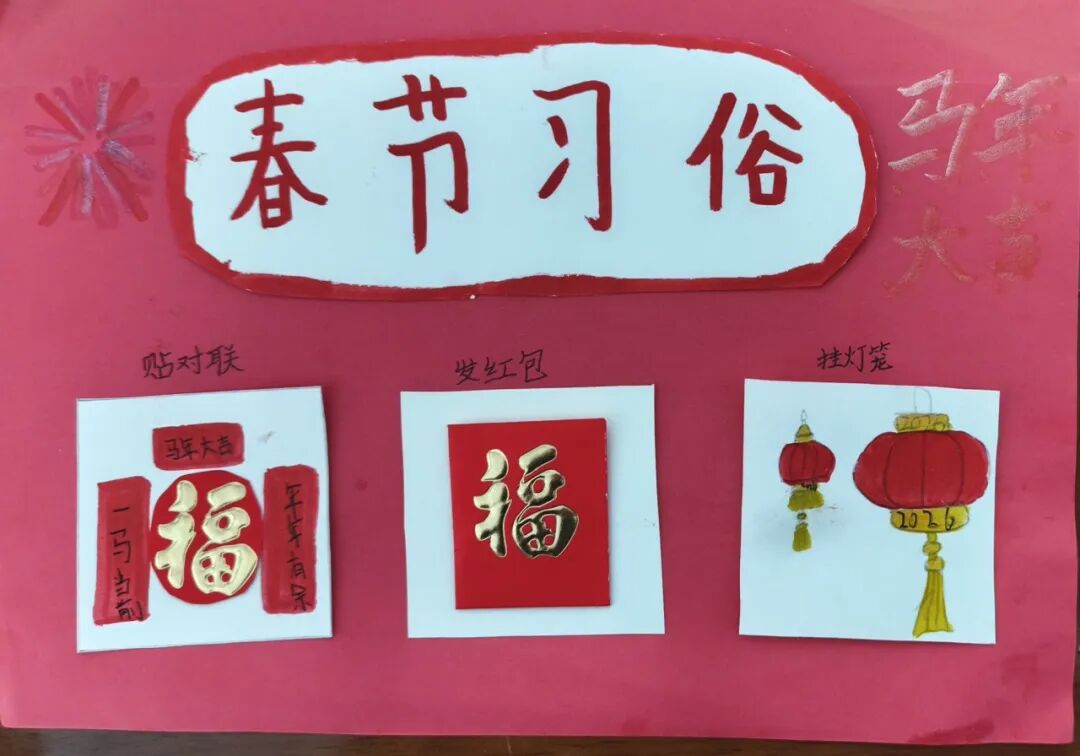 春节习俗
马年
大吉
贴对联
发红包
挂灯笼
马年大吉
一马当前
福
年年有余
福
2026
2026